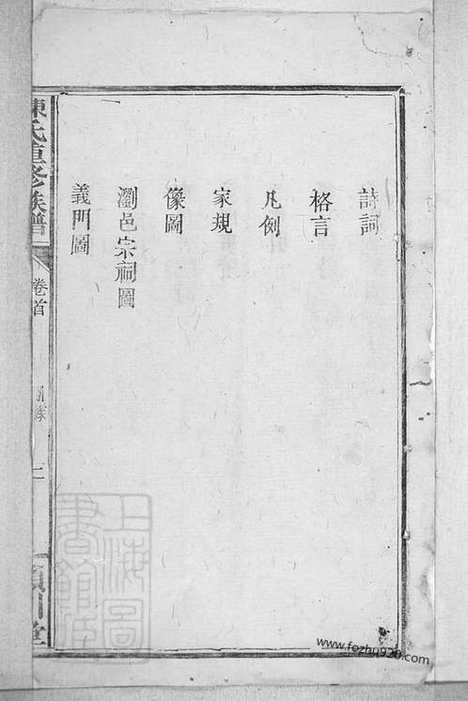 詩詞
格言
凡例
家規
像圖
瀏邑宗祠圖
義門圖
陳氏重修族譜
卷首
二
潁川堂
上海圖書館藏
www.fozhu920.com